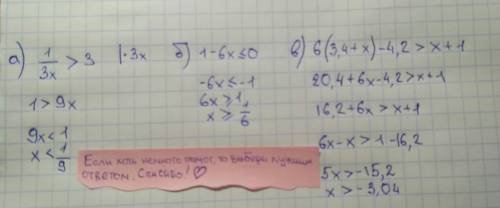 а) 1/3x > 3 |·3x
1 > 9x
9x < 1
x < 1/9
б) 1-6x ≤ 0
-6x ≤ -1
6x ≥ 1
x ≥ 1/6
в) 6(3,4+x)-4,2 > x+1
20,4+6x-4,2 > x+1
16,2+6x > x+1
6x-x > 1-16,2
5x > -15,2
x > -3,04
Если хоть немного помог, то выбери лучшим
ответом. Спасибо! ♡